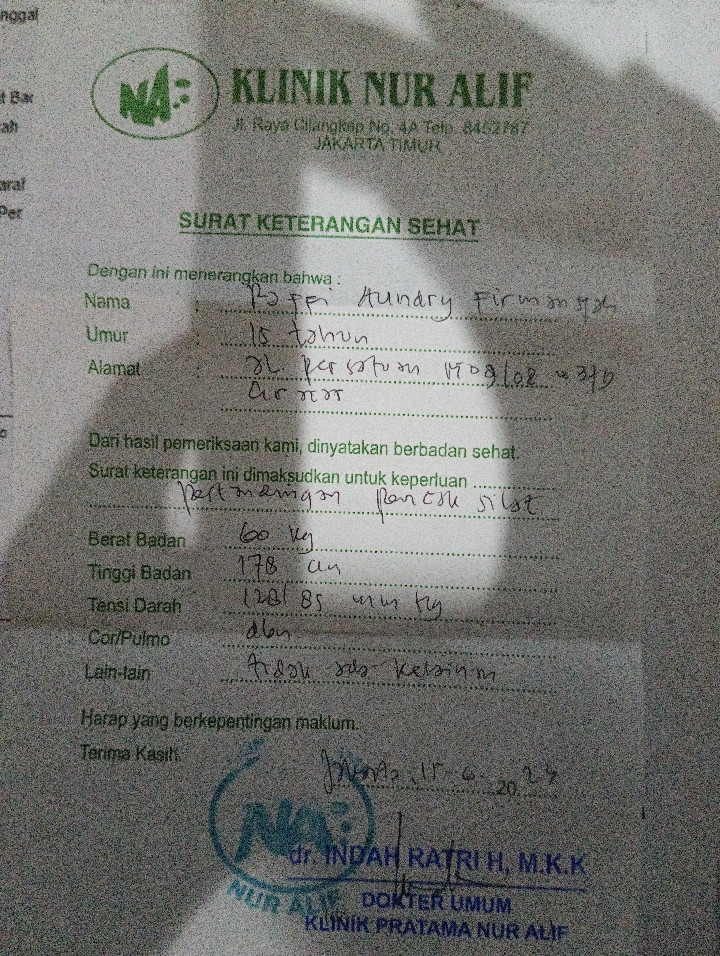 nggal
t Bar
ah
araf
Per
NA
KLINIK NUR ALIF
Jl. Raya Cilangkap No. 4A Telp. 8452787
JAKARTA TIMUR
SURAT KETERANGAN SEHAT
Dengan ini menerangkan bahwa :
Nama : Raffi Aundry Firmansyah
Umur : 15 tahun
Alamat : Jl. persatuan
Dari hasil pemeriksaan kami, dinyatakan berbadan sehat.
Surat keterangan ini dimaksudkan untuk keperluan
pertandingan pencak silat
Berat Badan 60 kg
Tinggi Badan 178 cm
Tensi Darah 128/85 mm Hg
Cor/Pulmo dbn
Lain-lain tidak ada kelainan
Harap yang berkepentingan maklum.
Terima Kasih.
15-6-2024
NA
NUR ALIF
dr. INDAH RATRI H, M.K.K
DOKTER UMUM
KLINIK PRATAMA NUR ALIF